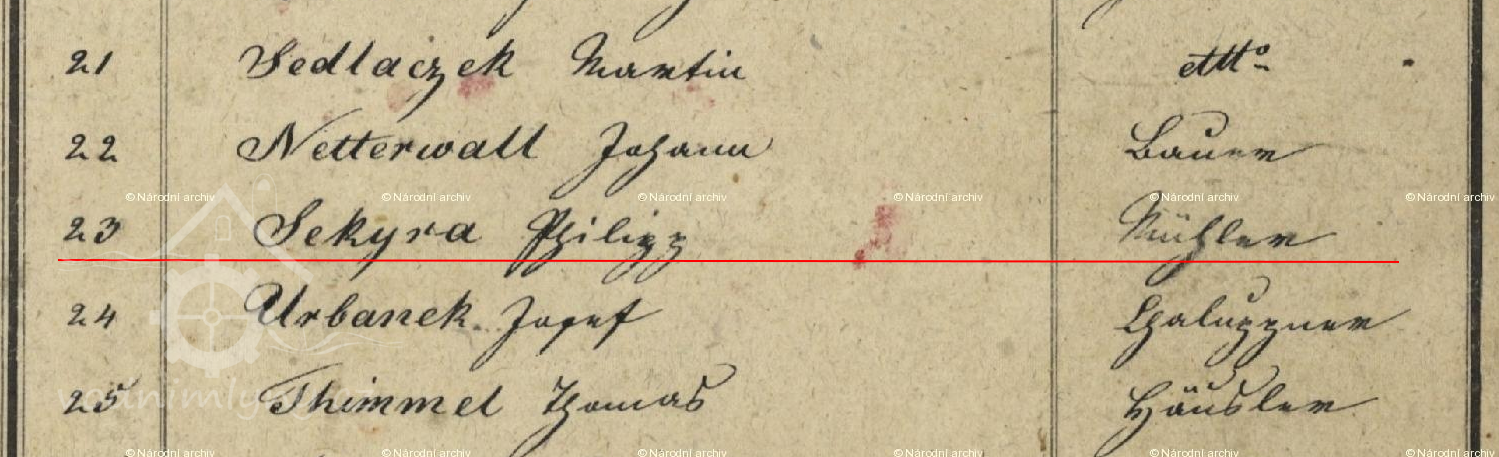 21 Sedlaczek Martin dtto
22 Netterwall Johann Bauer
© Národní archiv © Národní archiv © Národní archiv © Národní archiv © Národní archiv © Národní archiv
23 Sekyra Philipp Mühler
24 Urbanek Josef Chaluppner
25 Thimmel Thomas Häusler
© Národní archiv © Národní archiv © Národní archiv © Národní archiv © Národní archiv © Národní archiv